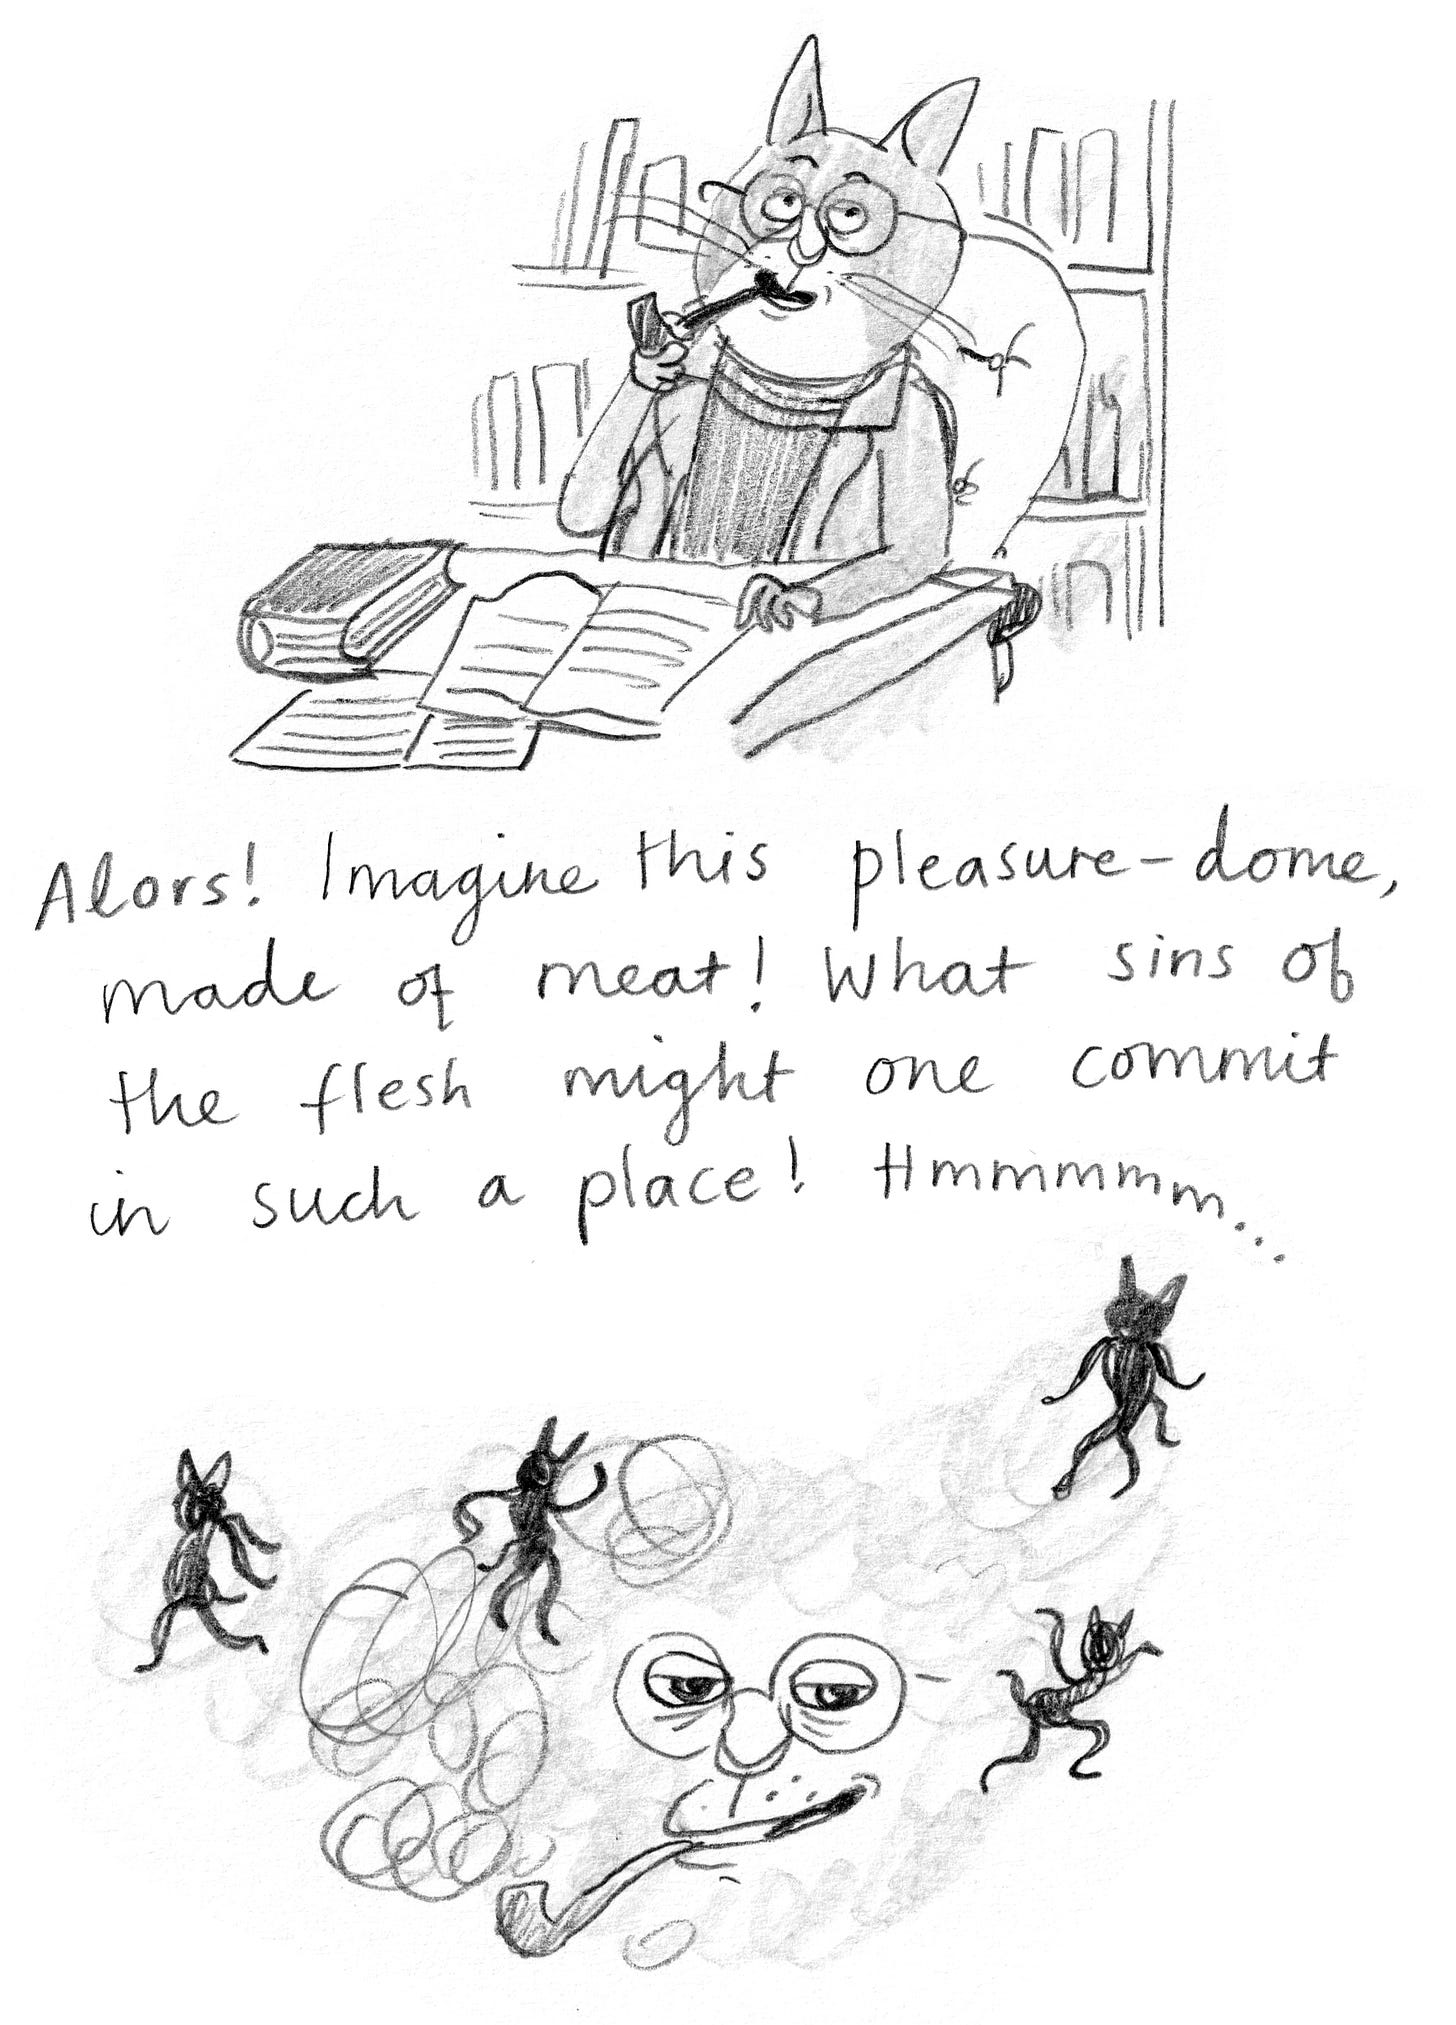 Alors! Imagine this pleasure-dome,
made of meat! What sins of
the flesh might one commit
in such a place! Hmmmmm...